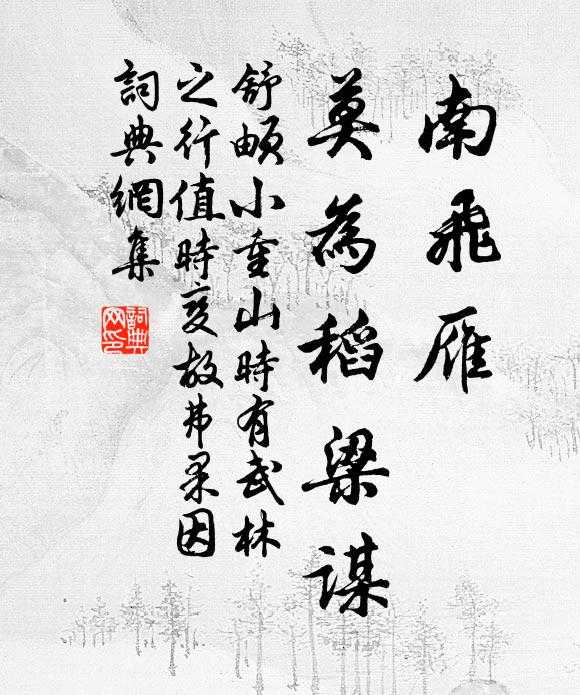 南飛雁
莫為稻梁謀
舒頔小重山時有武林
之行值時變故弗果因
詞典網集
詞典
網印